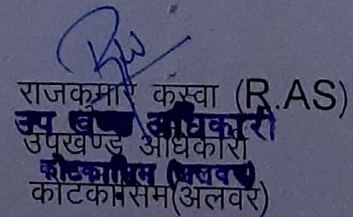 राजकुमार कस्वा (R.AS)
उप खण्ड अधिकारी
उपखण्ड अधिकारी
कोटकासिम (अलवर)
कोटकासिम(अलवर)